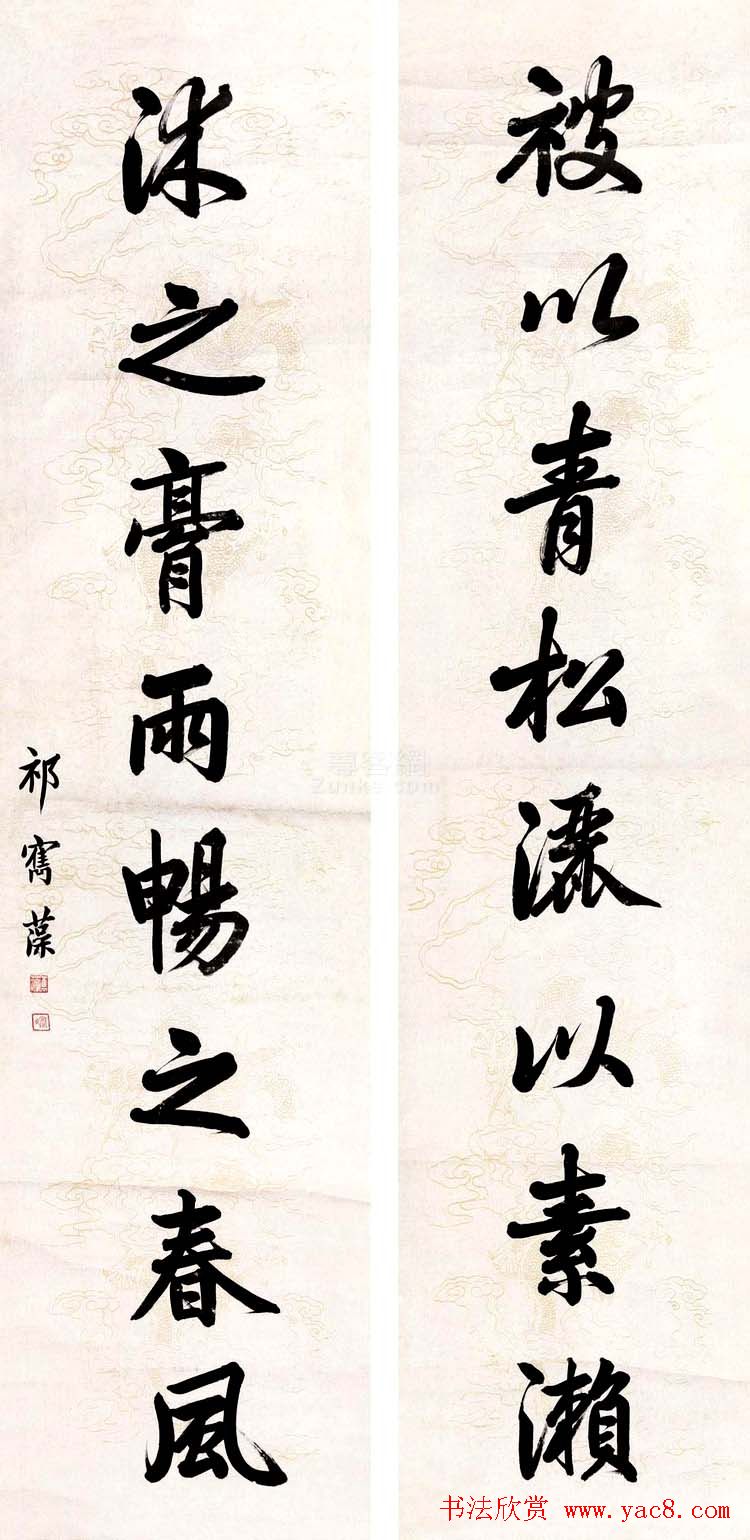 被以青松灑以素瀨
沐之膏雨暢之春風
祁寯藻
尊客網
Zunke.com
书法欣赏 www.yac8.com